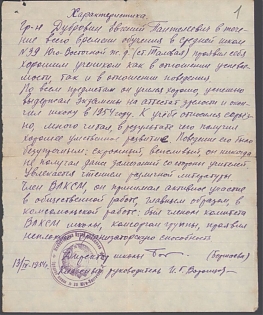 Характеристика
Гр-н Дубровин Евгений Пантелеевич в тече-
ние всего времени обучения в средней школе
№ 39 Юго-Восточной ж.д. (ст. Таловая) проявил себя
хорошим учеником как в отношении успевае-
мости, так и в отношении поведения.
По всем предметам он учился хорошо, успешно
выдержал экзамены на аттестат зрелости и окон-
чил школу в 1954 году. К учёбе относился серьёз-
но, много читал, в результате чего получил
хорошее умственное развитие. Поведение его было
безупречным: скромный, вежливый, он никогда
не получал даже замечаний со стороны учителей.
Увлекается чтением различной литературы.
Член ВЛКСМ, он принимал активное участие
в общественной работе, главным образом, в
комсомольской работе: был членом комитета
ВЛКСМ школы, комсоргом группы, проявил
неплохие организаторские способности.
Директор школы
Классный руководитель